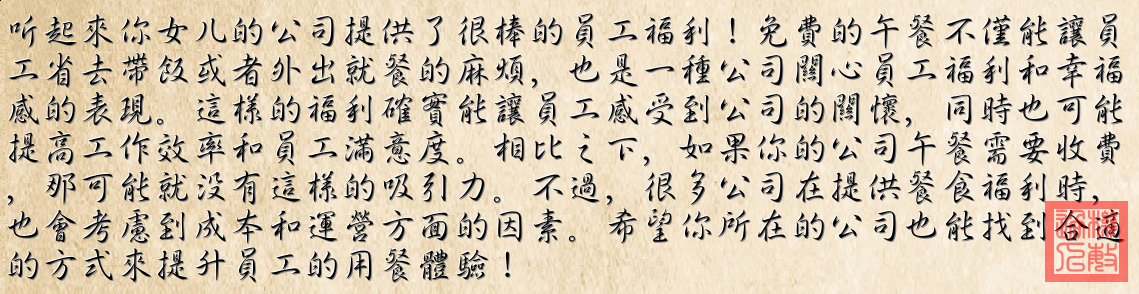 听起來你女儿的公司提供了很棒的員工福利！免費的午餐不僅能讓員
工省去帶飯或者外出就餐的麻煩，也是一種公司關心員工福利和幸福
感的表現。這樣的福利確實能讓員工感受到公司的關懷，同時也可能
提高工作效率和員工滿意度。相比之下，如果你的公司午餐需要收費
，那可能就没有這樣的吸引力。不過，很多公司在提供餐食福利時，
也會考慮到成本和運營方面的因素。希望你所在的公司也能找到合適
的方式來提升員工的用餐體驗！